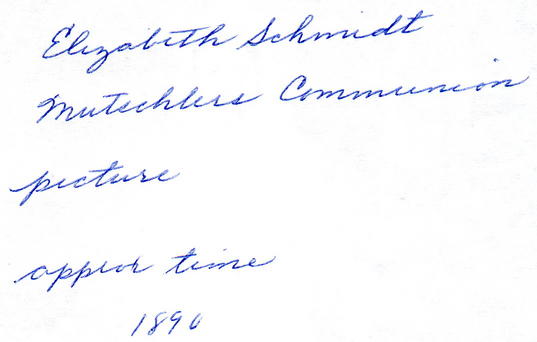 Elizabeth Schmidt
Mutschlers Communion
picture
appior time
1890